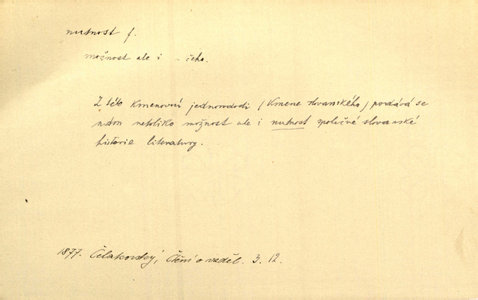 nutnost f.
možnost ale i - čeho.
Z této kmenovní jednorodosti (kmene slovanského) podává se
netoliko možnost ale i nutnost společné slovanské
historie literatury.
1877. Čelakovský, Čtení o vzděl. 3. 12.